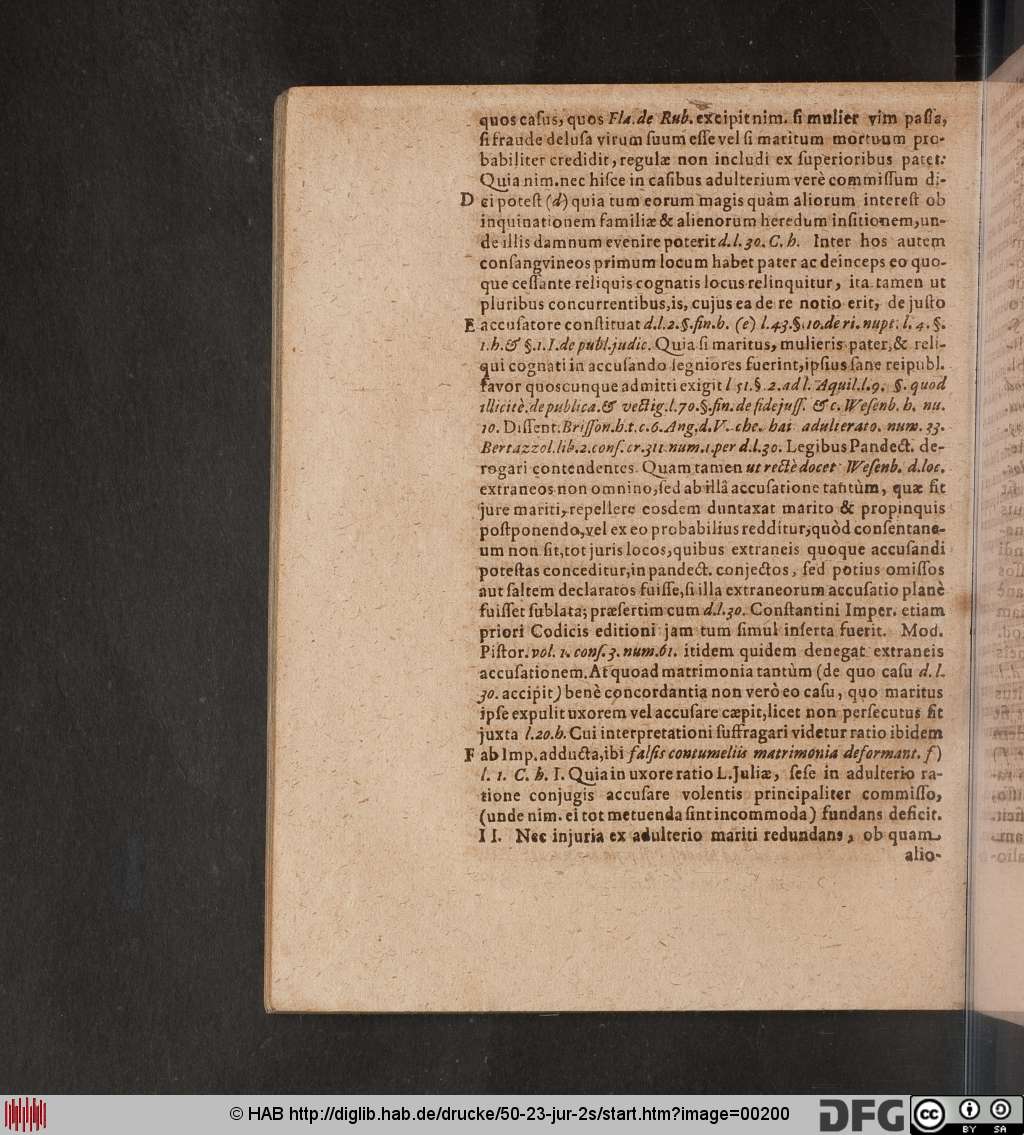 quos casus, quos Fla. de Rub. excipit nim. si mulier vim passa,
si fraude delusa virum suum esse vel si maritum mortuum pro-
babiliter credidit, regulæ non includi ex superioribus patet:
Quia nim. nec hisce in casibus adulterium verè commissum di-
D ci potest (d) quia tum eorum magis quàm aliorum interest ob
inquinationem familiæ & alienorum heredum insitionem, un-
de illis damnum evenire poterit d. l. 30. C. h. Inter hos autem
consangvineos primum locum habet pater ac deinceps eo quo-
que cessante reliquis cognatis locus relinquitur, ita tamen ut
pluribus concurrentibus, is, cujus ea de re notio erit, de justo
E accusatore constituat d. l. 2. §. fin. h. (e) l. 43. §. 10. de ri. nupt. l. 4. §.
1. h. & §. 1. I. de publ. judic. Quia si maritus, mulieris pater, & reli-
qui cognati in accusando segniores fuerint, ipsius sane reipubl.
favor quoscunque admitti exigit l 51. §. 2. ad l. Aquil. l. 9. §. quod
illicitè. de publica. & vectig. l. 70. §. fin. de fidejuss. & c. Wesenb. h. nu.
10. Dissent. Brisson. h. t. c. 6. Ang. d. V. che. hai adulterato. num. 33.
Bertazzol. lib. 2. cons. cr. 311 num. 1. per d. l. 30. Legibus Pandect. de-
rogari contendentes. Quam tamen ut rectè docet Wesenb. d. loc.
extraneos non omnino, sed ab illâ accusatione tantùm, quæ fit
jure mariti, repellere eosdem duntaxat marito & propinquis
postponendo, vel ex eo probabilius redditur, quòd consentane-
um non sit, tot juris locos, quibus extraneis quoque accusandi
potestas conceditur, in pandect. conjectos, sed potius omissos
aut saltem declaratos fuisse, si illa extraneorum accusatio planè
fuisset sublata; præsertim cum d. l. 30. Constantini Imper. etiam
priori Codicis editioni jam tum simul inserta fuerit. Mod.
Pistor. vol. 1. cons. 3. num. 61. itidem quidem denegat extraneis
accusationem. At quoad matrimonia tantùm (de quo casu d. l.
30. accipit) benè concordantia non verò eo casu, quo maritus
ipse expulit uxorem vel accusare cæpit, licet non persecutus sit
juxta l. 20. h. Cui interpretationi suffragari videtur ratio ibidem
F ab Imp. adducta, ibi falsis contumeliis matrimonia deformant. f)
l. 1. C. h. I. Quia in uxore ratio L. Juliæ, sese in adulterio ra-
tione conjugis accusare volentis principaliter commisso,
(unde nim. ei tot metuenda sint incommoda) fundans deficit.
II. Nec injuria ex adulterio mariti redundans, ob quam
alio-
© HAB http://diglib.hab.de/drucke/50-23-jur-2s/start.htm?image=00200
DFG
cc
BY SA